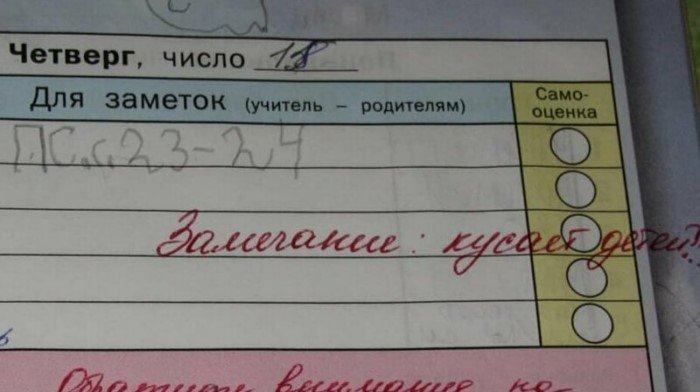 Четверг, число 18
Для заметок (учитель – родителям)
Само-
оценка
П.С.с.23-24
Замечание: кусает детей?..
Обратите внимание на